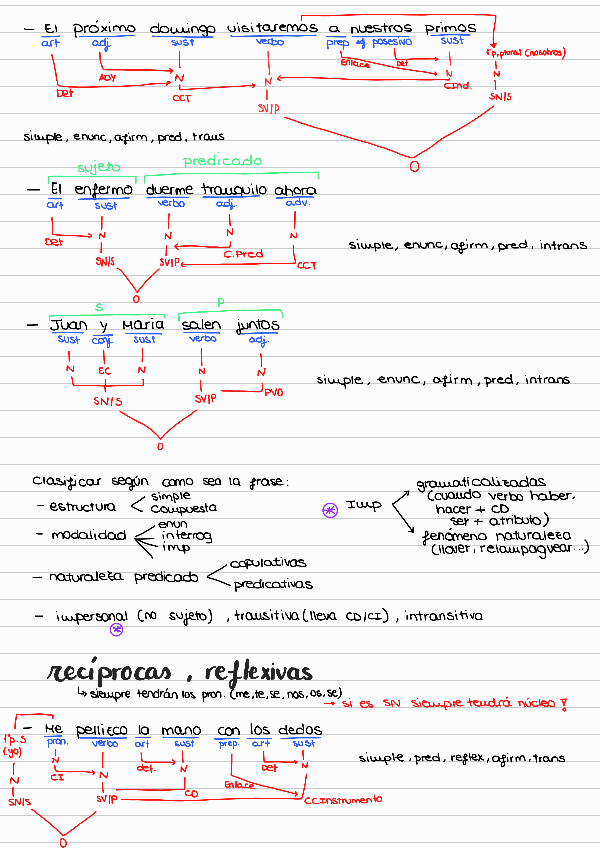 - El próximo domingo visitaremos a nuestros primos
art adj. sust verbo prep adj. posesivo sust 1ªp.plural (nosotros)
N N N N
Det ADY CCT Enlace Det CInd. SN/S
SV/P
O
simple, enunc, afirm, pred, trans
sujeto predicado
- El enfermo duerme tranquilo ahora
art sust verbo adj. adv.
N N N N
Det SN/S SV/P C.Pred CCT
simple, enunc, afirm, pred, intrans
O
S P
- Juan y Maria salen juntos
sust conj. sust verbo adj.
N EC N N N
SN/S SV/P PVO
simple, enunc, afirm, pred, intrans
O
Clasificar según como sea la frase:
- estructura simple
compuesta
- modalidad enun
interrog
imp
- naturaleza predicado copulativas
predicativas
* Imp gramaticalizadas
(cuando verbo haber,
hacer + CD
ser + atributo)
fenómeno naturaleza
(llover, relampaguear...)
- impersonal (no sujeto), transitiva (lleva CD/CI), intransitiva
*
recíprocas, reflexivas
↳ siempre tendrán los pron. (me, te, se, nos, os, se)
→ si es SN siempre tendrá núcleo!
- Me pellizco la mano con los dedos
1ªp.S pron. verbo art sust prep. art sust
(yo)
N N N N N
CI det. Det
SN/S SV/P CD Enlace CCInstrumento
simple, pred, reflex, afirm, trans
O